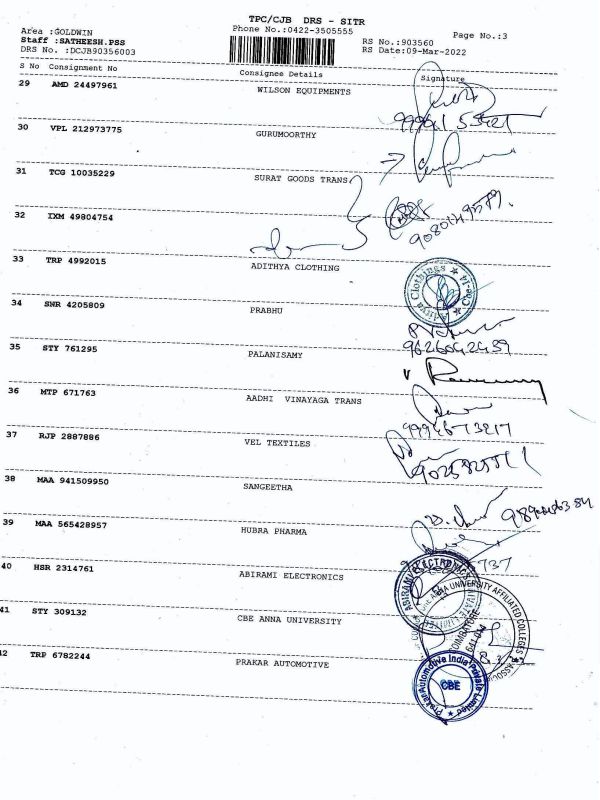 TPC/CJB DRS - SITR
Area :GOLDWIN
Phone No.:0422-3505555
Page No.:3
Staff :SATHEESH.PSS
RS No.:903560
DRS No. :DCJB90356003
RS Date:09-Mar-2022
S No Consignment No Consignee Details Signature
29 AMD 24497961 WILSON EQUIPMENTS
30 VPL 212973775 GURUMOORTHY
31 TCG 10035229 SURAT GOODS TRANS
32 IXM 49804754
33 TRP 4992015 ADITHYA CLOTHING
Aditya Clothings ★ Cbe-14 ★
34 SNR 4205809 PRABHU
9626642439
35 STY 761295 PALANISAMY
36 MTP 671763 AADHI VINAYAGA TRANS
37 RJP 2887886 VEL TEXTILES
38 MAA 941509950 SANGEETHA
39 MAA 565428957 HUBRA PHARMA
40 HSR 2314761 ABIRAMI ELECTRONICS
ABIRAMI ELECTRONICS PRIVATE LIMITED
41 STY 309132 CBE ANNA UNIVERSITY
ANNA UNIVERSITY AFFILIATED COLLEGES
COIMBATORE
42 TRP 6782244 PRAKAR AUTOMOTIVE
Prakar Automotive India Private Limited ★
CBE